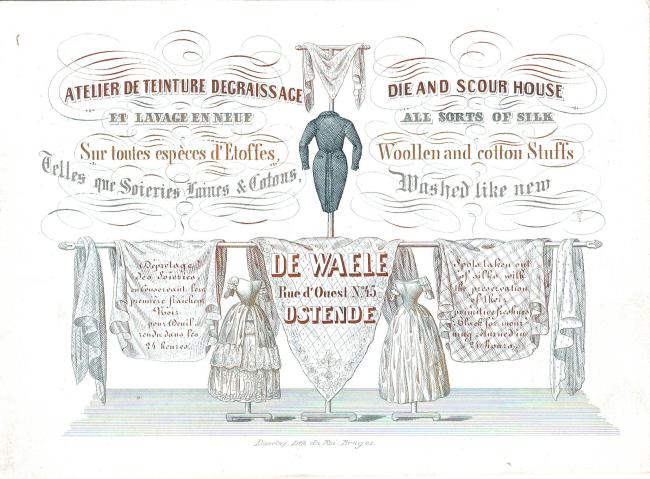 ATELIER DE TEINTURE DEGRAISSAGE
ET LAVAGE EN NEUF
Sur toutes espèces d'Etoffes,
Telles que Soieries Laines & Cotons,
DIE AND SCOUR HOUSE
ALL SORTS OF SILK
Woollen and cotton Stuffs
Washed like new
Dépretage
des Soieries,
en conservant leur
première fraicheur
Noir
pour Deuil
rendu dans les
24 heures.
DE WAELE
Rue d'Ouest N°. 45
OSTENDE
Spots taken out
of silks, with
the preservation
of their
primitive freshnes
Black for mour
ning returned in
24 hours.
Lith. du Roi. Bruges.